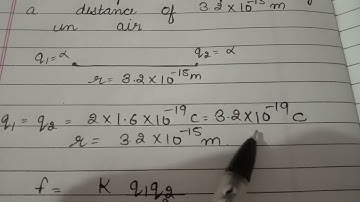 a distance of 3.2×10⁻¹⁵ m
in air
q₁=α q₂=α
r = 3.2×10⁻¹⁵ m
q₁ = q₂ = 2×1.6×10⁻¹⁹ C = 3.2×10⁻¹⁹ C
r = 3.2×10⁻¹⁵ m
f = K q₁q₂